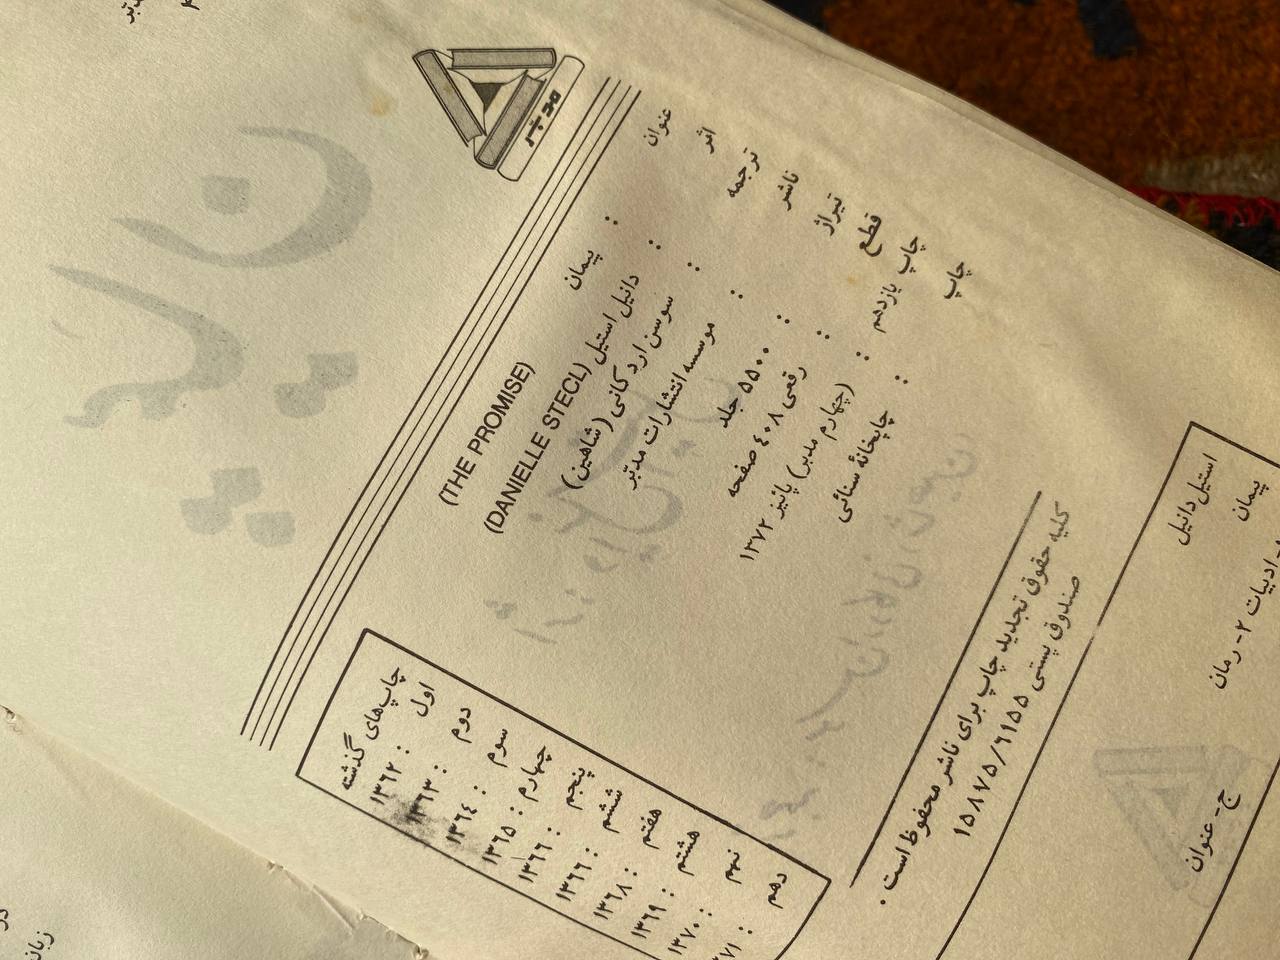 مدبّر
عنوان : پیمان (THE PROMISE)
اثر : دانیل استیل (DANIELLE STECL)
ترجمه : سوسن اردکانی (شاهین)
ناشر : موسسه انتشارات مدبّر
تیراژ : ۵۵۰۰ جلد
قطع : رقعی ۴۰۸ صفحه
چاپ یازدهم : (چهارم مدبر) پائیز ۱۳۷۲
چاپ : چاپخانهٔ سنائی
چاپ‌های گذشته
اول : ۱۳۶۲
دوم : ۱۳۶۳
سوم : ۱۳۶۴
چهارم : ۱۳۶۵
پنجم : ۱۳۶۶
ششم : ۱۳۶۶
هفتم : ۱۳۶۸
هشتم : ۱۳۶۹
نهم : ۱۳۷۰
دهم :
کلیه حقوق تجدید چاپ برای ناشر محفوظ است .
صندوق پستی ۱۵۸۷۵/۶۱۵۵
استیل دانیل
پیمان
ادبیات ۲- رمان
ج- عنوان
زبان